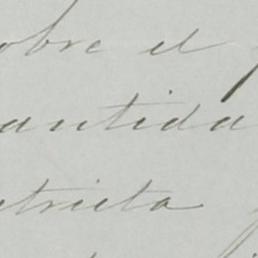 obre el
antida
stricta